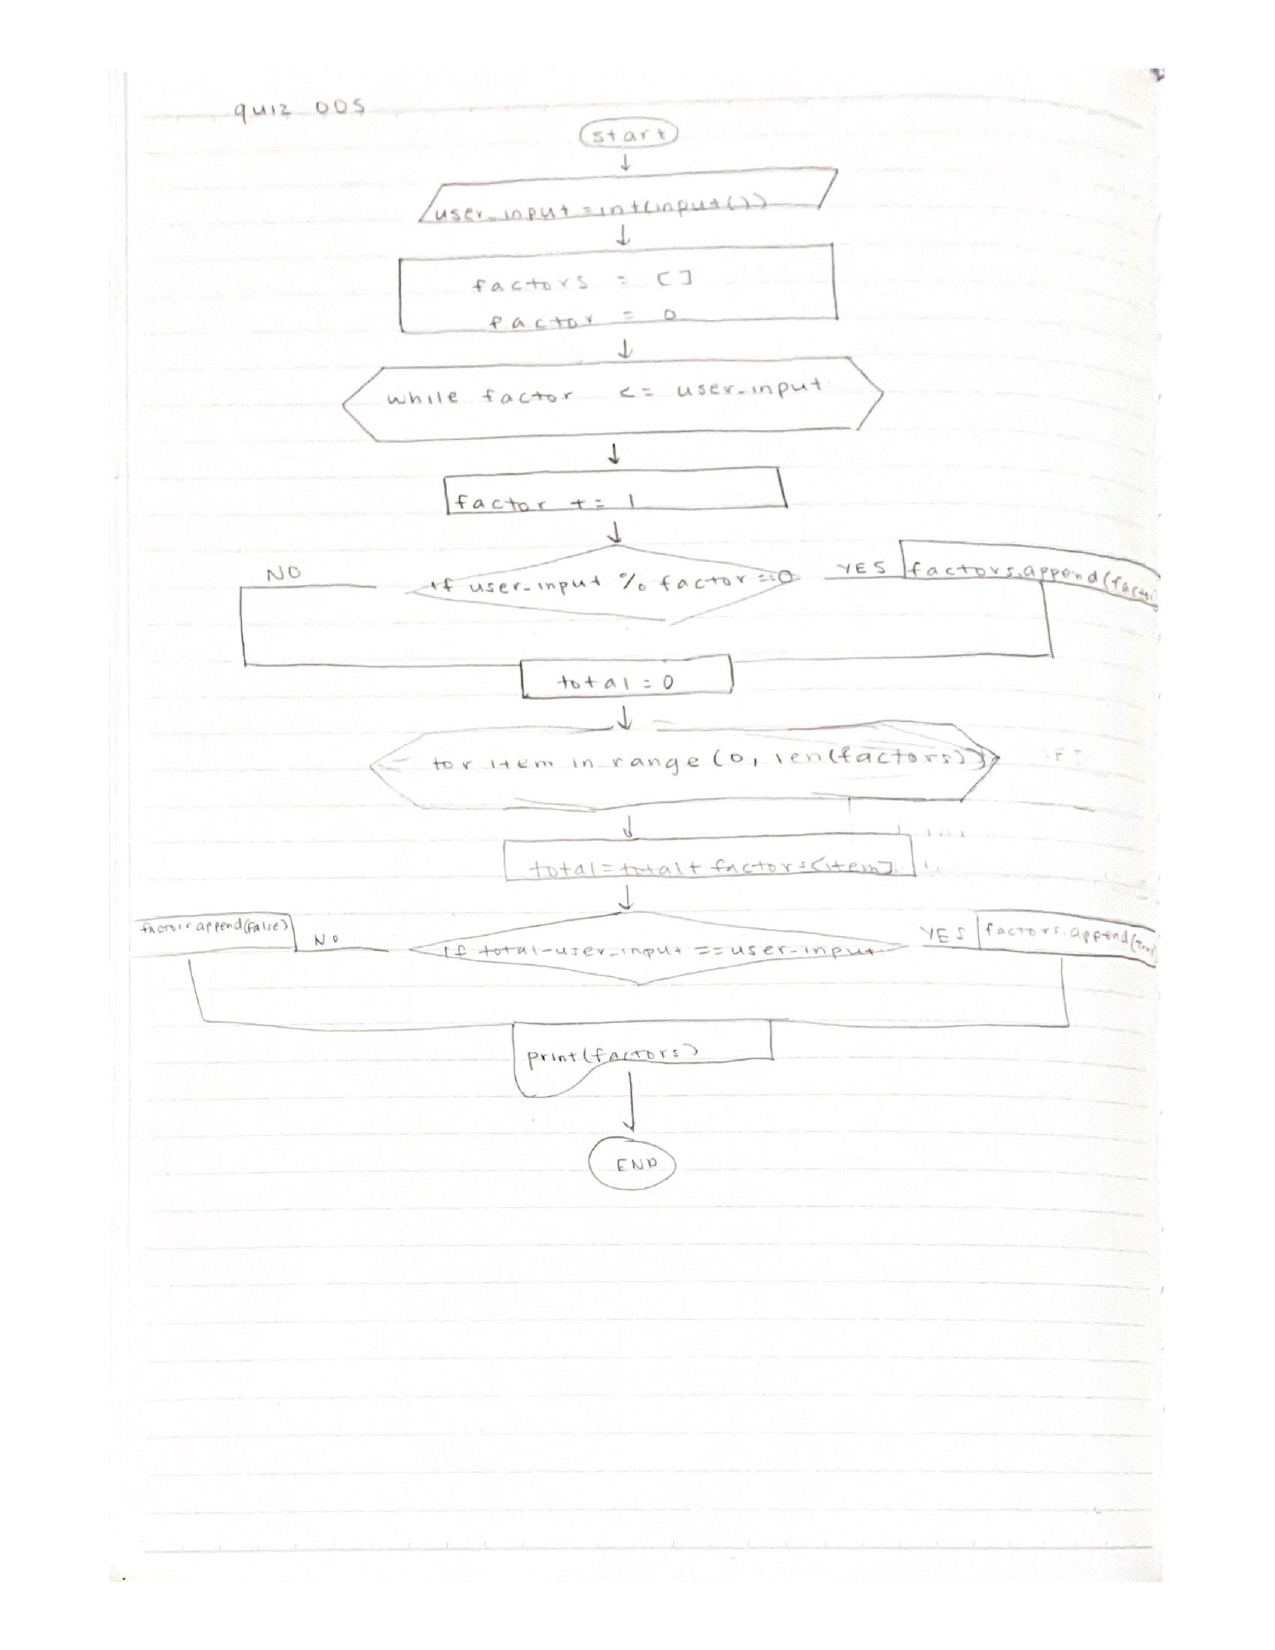 quiz 005
start
user_input = int(input())
factors = []
factor = 0
while factor <= user_input
factor += 1
NO
if user_input % factor == 0
YES
factors.append(factor
total = 0
for item in range (0, len(factors))
total = total + factors[item]
factors.append(False)
NO
if total-user_input == user_input
YES
factors.append(
print(factors)
END